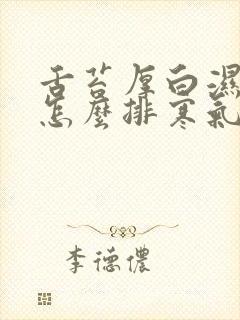 舌苔厚白濕
怎麼排寒氣
李德儂